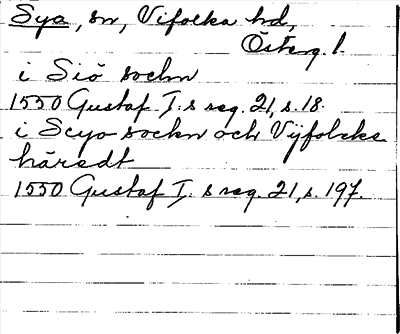 Sya, sn, Vifolka hd,
Österg. l.
i Siö sockn
1550 Gustaf I:s reg. 21, s. 18.
i Scyo sockn och Vijfolcka
häradt
1550 Gustaf I:s reg. 21, s. 197.